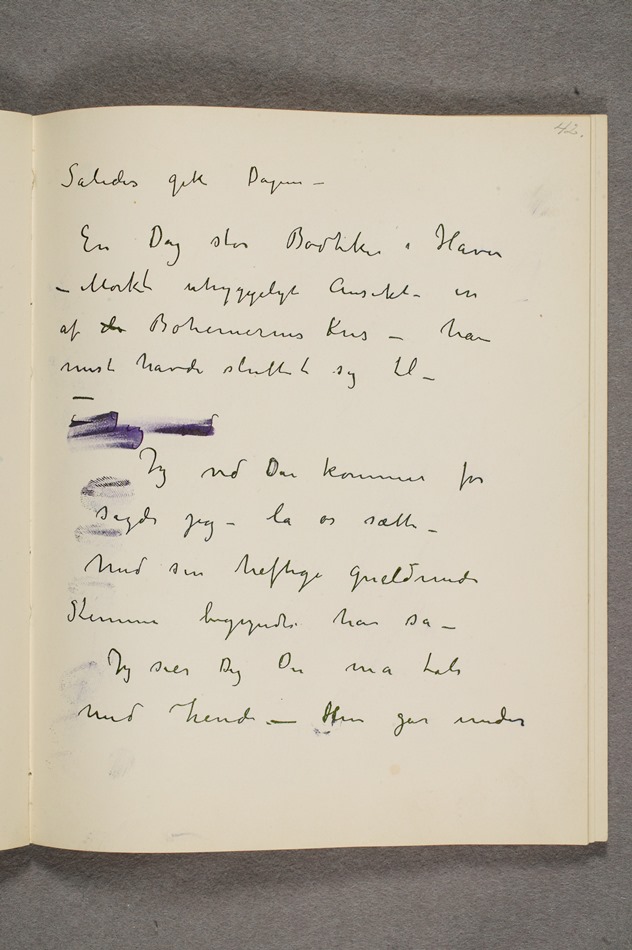 42.
Således gik Dagene –
En Dag stod Bødtker i Haven
– Mørkt uhyggeligt Ansikt – en
af de Bohemernes Kres – han
mest havde sluttet sig til –
–
Jeg ved Du kommer for
sagde jeg – la os sætte –
Med sin heftige gneldrende
Stemme begyndte han så –
Jeg sier Dig Du må tale
med hende – Hun går under